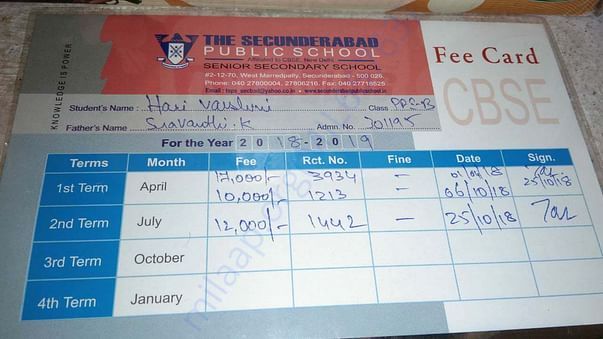 THE SECUNDERABAD
PUBLIC SCHOOL
Affiliated to CBSE, New Delhi
SENIOR SECONDARY SCHOOL
#2-12-70, West Marredpally, Secunderabad - 500 026.
Phone: 040 27800004, 27806216, Fax: 040 27718525
Email : tsps_secbad@yahoo.co.in • www.secunderabadpublicschool.in
KNOWLEDGE IS POWER
Fee Card
CBSE
Student's Name : Hari Varshini Class PPC-B
Father's Name : Sravanthi.K Admn. No. 701195
For the Year 2018-2019
Terms Month Fee Rct. No. Fine Date Sign.
1st Term April 17,000/- 3934 – 01/04/18
10,000/- 1213 – 06/10/18 25/10/18
2nd Term July 12,000/- 1442 – 25/10/18
3rd Term October
4th Term January
milaap